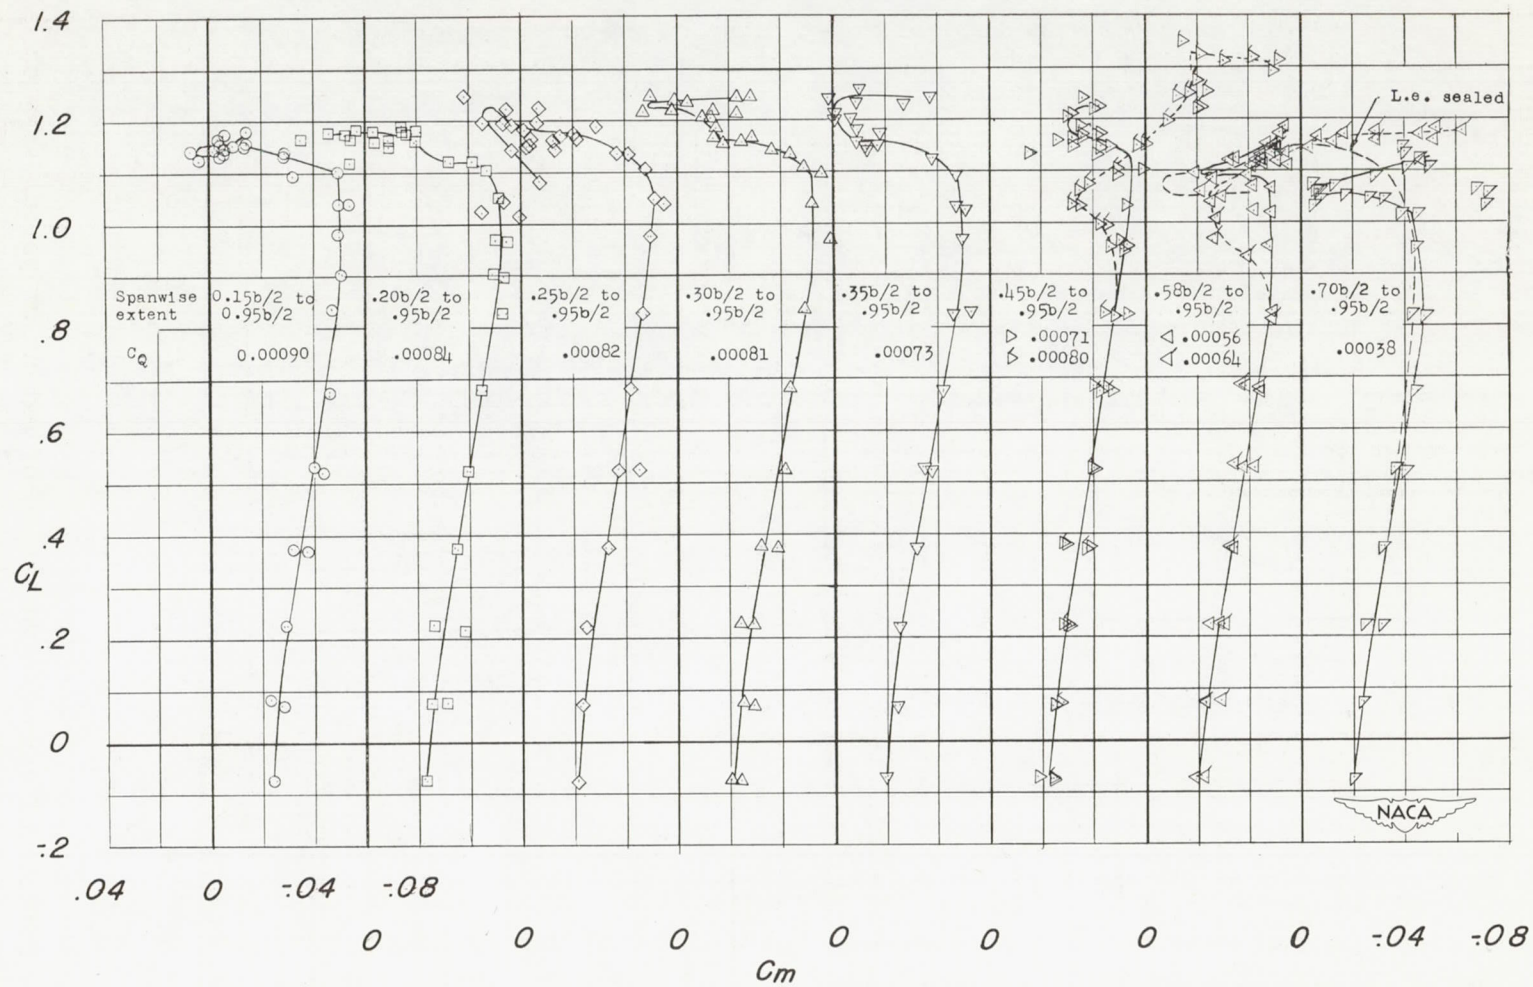 1.4
1.2
1.0
.8
.6
.4
.2
0
-.2
C_L
L.e. sealed
Spanwise extent
0.15b/2 to
0.95b/2
.20b/2 to
.95b/2
.25b/2 to
.95b/2
.30b/2 to
.95b/2
.35b/2 to
.95b/2
.45b/2 to
.95b/2
.58b/2 to
.95b/2
.70b/2 to
.95b/2
C_Q
0.00090
.00084
.00082
.00081
.00073
.00071
.00080
.00056
.00064
.00038
NACA
.04 0 -.04 -.08
0 0 0 0 0 0 0 -.04 -.08
C_m